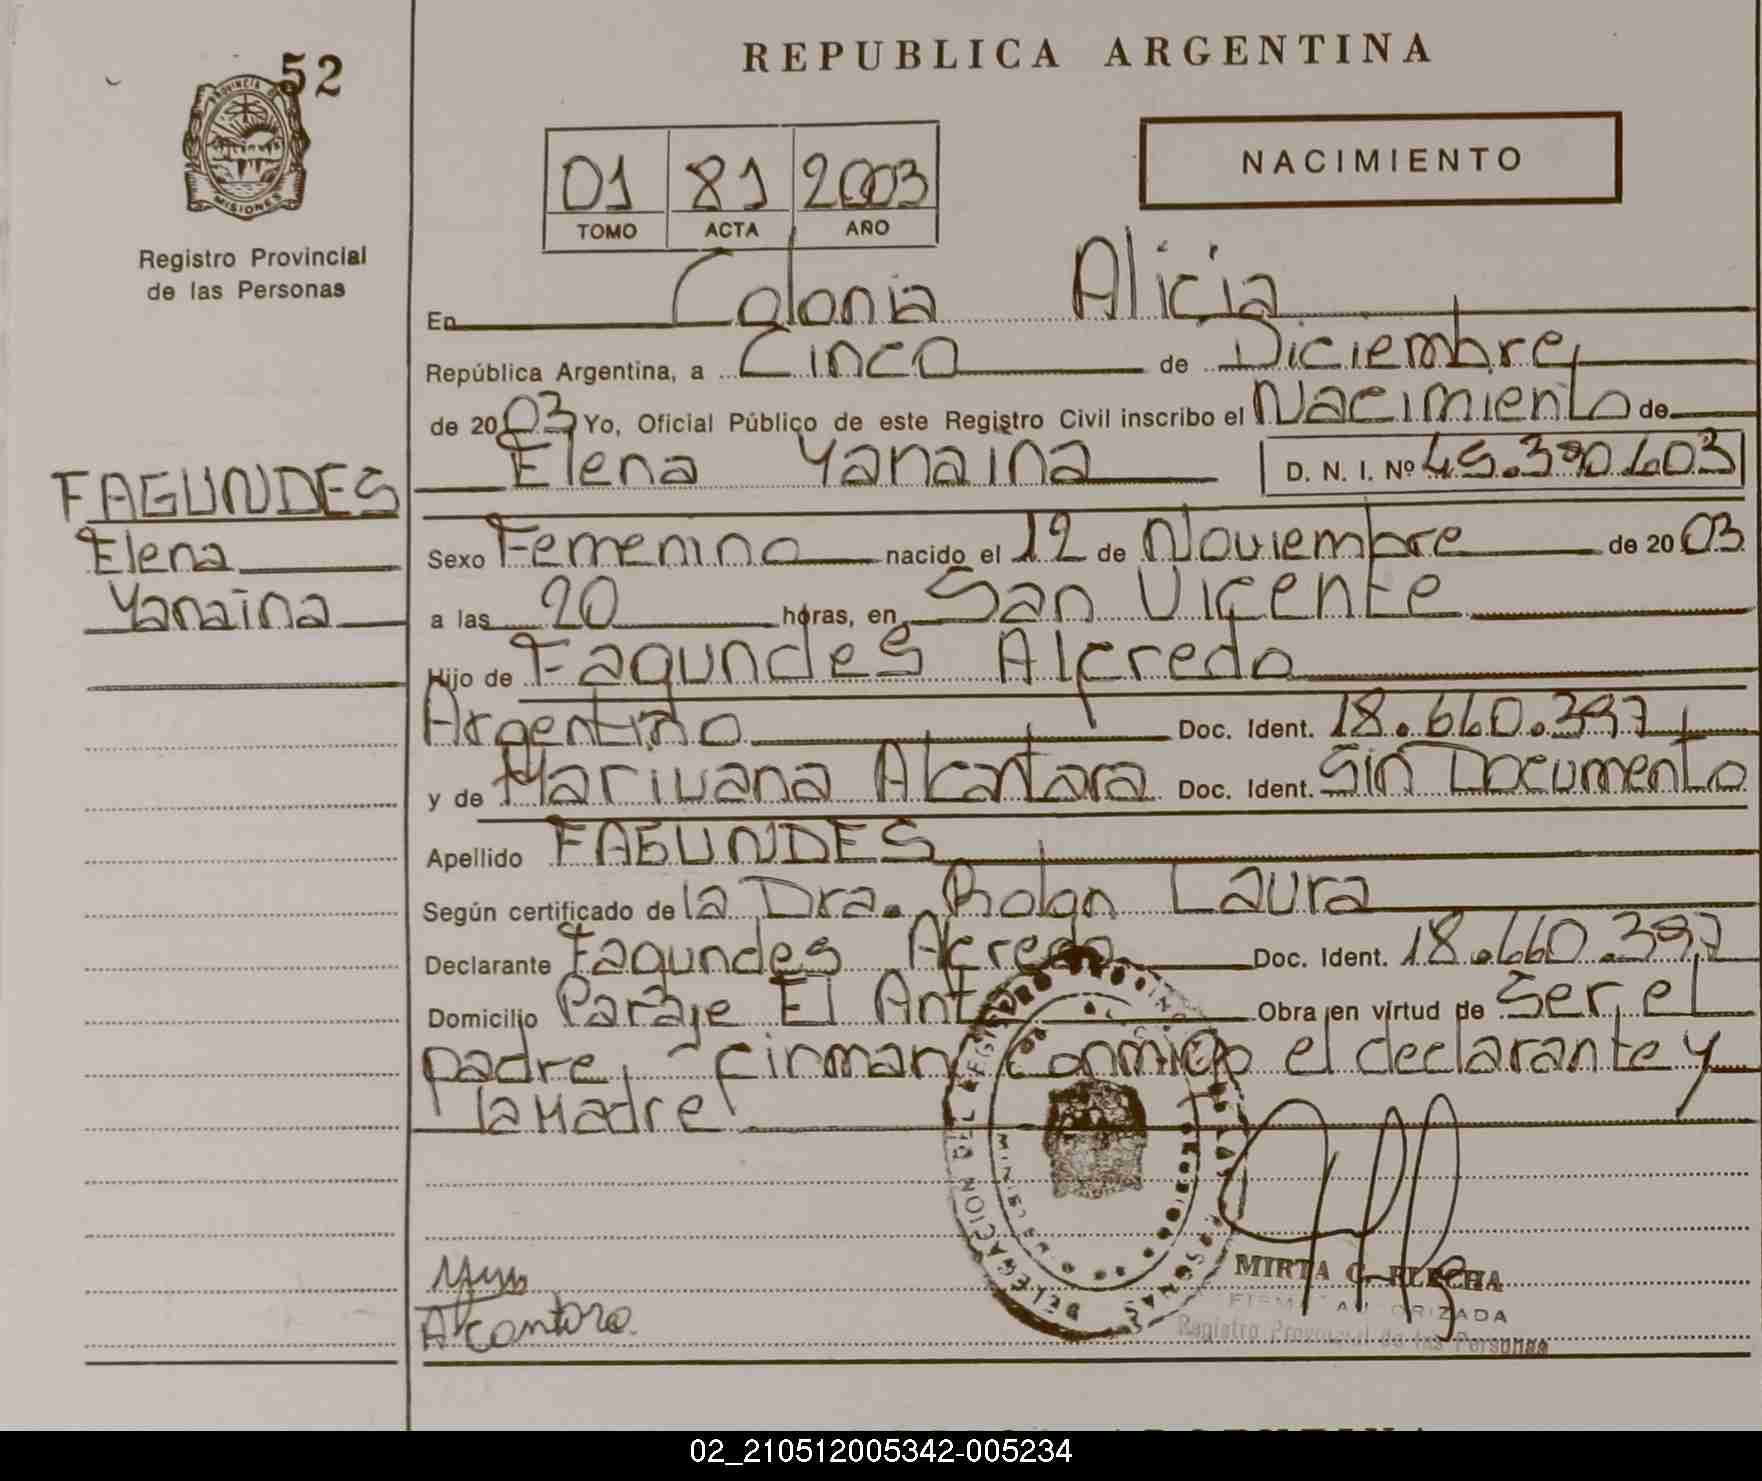 52
PROVINCIA DE
MISIONES
Registro Provincial
de las Personas
FAGUNDES
Elena
Yanaina
REPUBLICA ARGENTINA
01 81 2003
TOMO ACTA AÑO
NACIMIENTO
En Colonia Alicia
República Argentina, a Cinco de Diciembre,
de 2003 Yo, Oficial Público de este Registro Civil inscribo el Nacimiento de
Elena Yanaina D. N. I. Nº 45.390.603
Sexo Femenino nacido el 12 de Noviembre de 2003
a las 20 horas, en San Vicente
Hijo de Fagundes Alfredo
Argentino Doc. Ident. 18.660.397
y de Marivana Alcantara Doc. Ident. Sin Documento
Apellido FAGUNDES
Según certificado de la Dra. Rolon Laura
Declarante Fagundes Alfredo Doc. Ident. 18.660.397
Domicilio Paraje El Anta Obra en virtud de Ser el
padre, firman conmigo el declarante y
la Madre
DELEGACION DEL REGISTRO
MIRTA G. FLECHA
FIRMA AUTORIZADA
Registro Provincial de las Personas
Alcantara
02_210512005342-005234